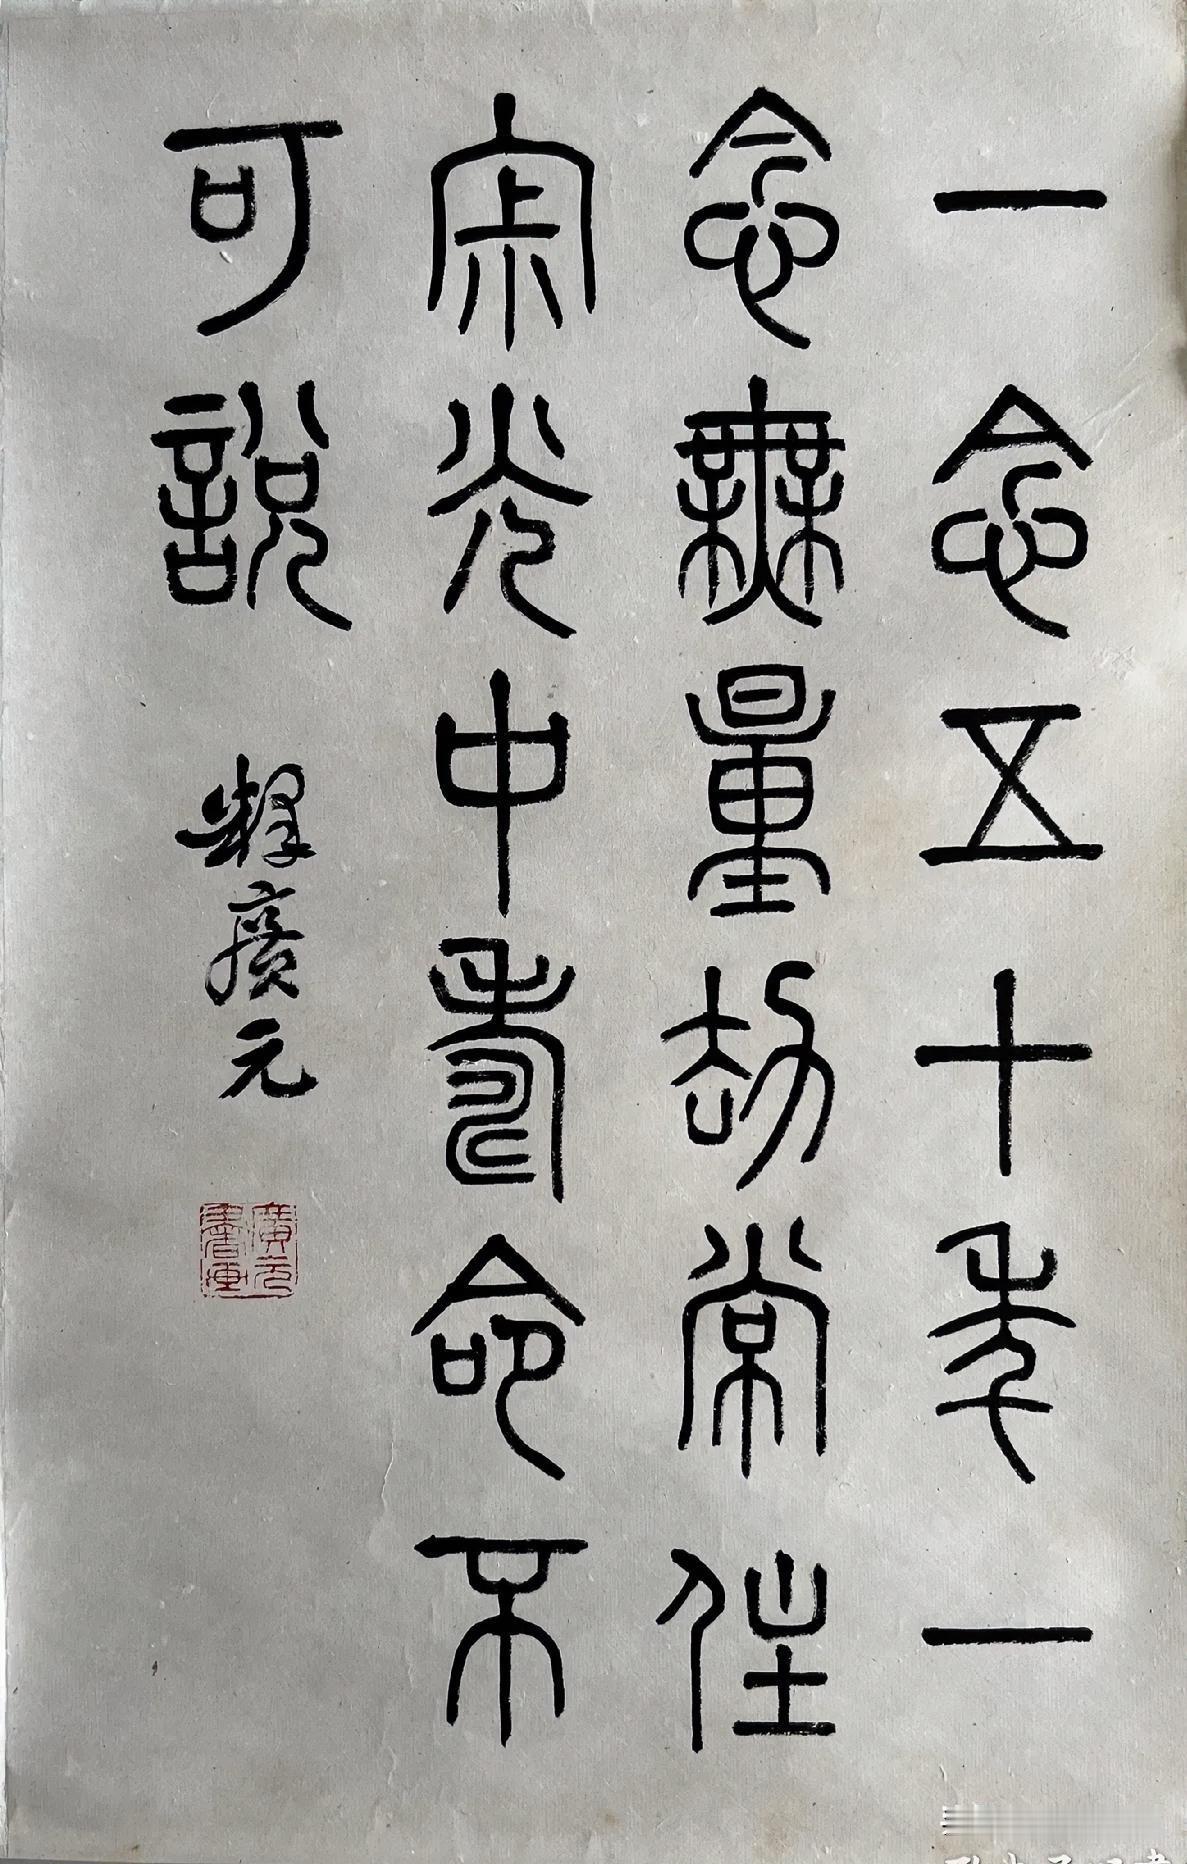 一念五十年一
念無量劫常住
寂光中壽命不
可說
釋廣元
廣元
書畫